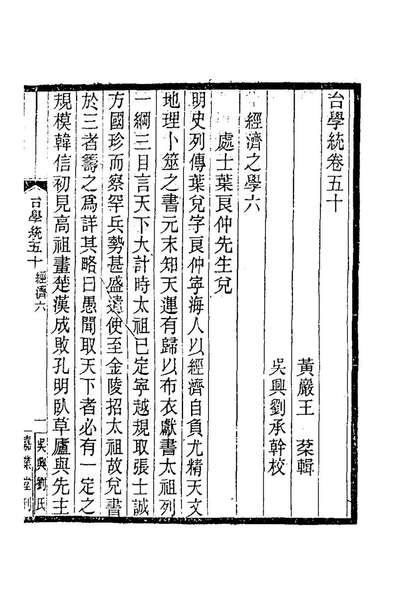 台學統卷五十
黃巖王棻輯
吳興劉承幹校
經濟之學六
處士葉良仲先生兌
明史列傳葉兌字良仲寧海人以經濟自負尤精天文
地理卜筮之書元末知天運有歸以布衣獻書太祖列
一綱三目言天下大計時太祖已定寧越規取張士誠
方國珍而察罕兵勢甚盛遣使至金陵招太祖故兌書
於三者籌之爲詳其略曰愚聞取天下者必有一定之
規模韓信初見高祖畫楚漢成敗孔明臥草廬與先主
台學統五十
經濟六
一
吳興劉氏
嘉業堂刊